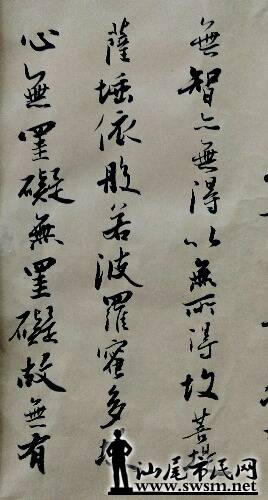 無智亦無得以無所得故菩提
薩埵依般若波羅蜜多故
心無罣礙無罣礙故無有
汕尾市民网
www.swsm.net